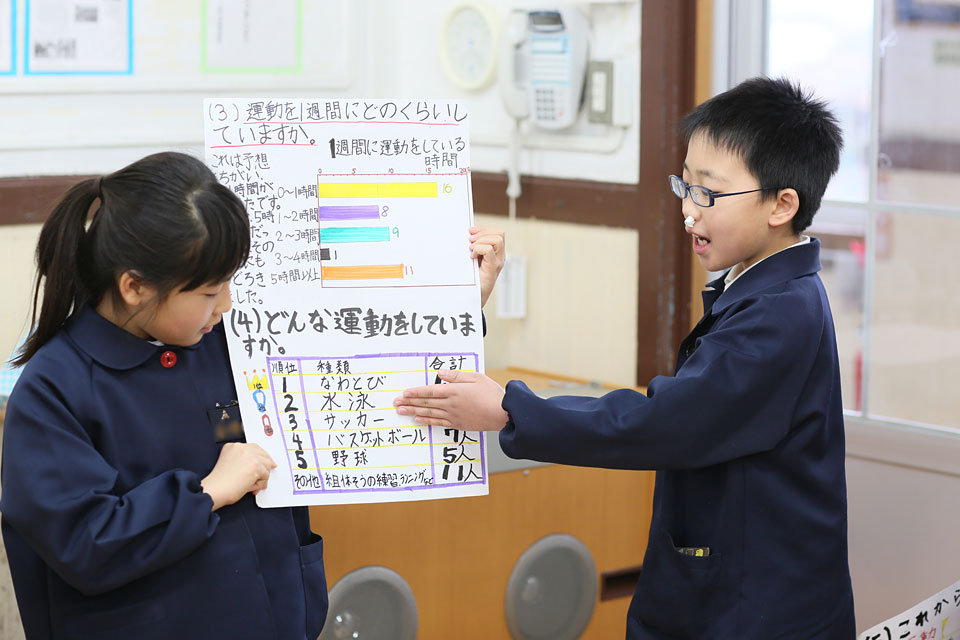 (3) 運動を1週間にどのくらいし
ていますか。
1週間に運動をしている
時間
これは予想
ちがい、
時間が
たです。
5時
だっ
その
も
どろき
した。
0 5 10 15
0〜1時間 16
1〜2時間 8
2〜3時間 9
3〜4時間 1
5時間以上 11
(4)どんな運動をしていま
すか。
順位 種類 合計
1位
1 なわとび
2 水泳
3 サッカー
4 バスケットボール 7人
5 野球 5人
その他 組体そうの練習、ランニングなど 11人
これから